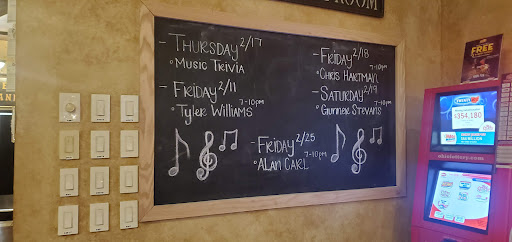 ROOM
- THURSDAY 2/17
° MUSIC TRIVIA
- FRIDAY 2/11
7-10pm
° TYLER WILLIAMS
- FRIDAY 2/18
7-10pm
° CHRIS HARTMAN
- SATURDAY 2/19
7-10pm
° GUNNER STEVANS
- FRIDAY 2/25
7-10pm
° ALAN CARL
FREE
$354,180